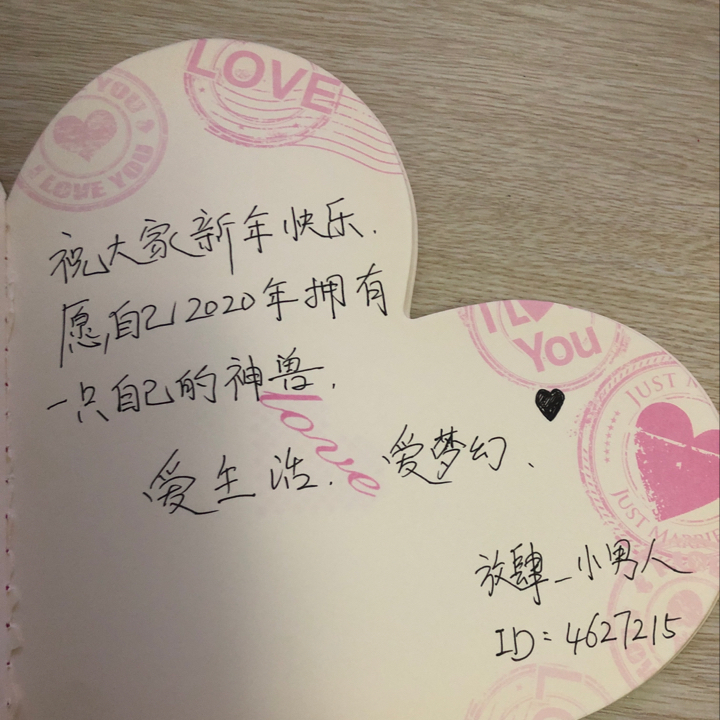 LOVE
YOU &
I LOVE YOU
祝大家新年快乐.
愿自己2020年拥有
一只自己的神兽.
love
爱生活. 爱梦幻、
I L
You
JUST M
JUST MARRIE
放肆_小男人
ID: 4627215